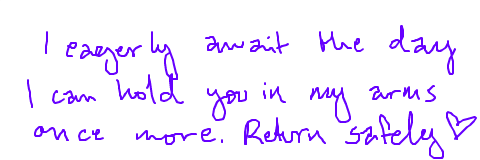 I eagerly await the day
I can hold you in my arms
once more. Return safely ♡